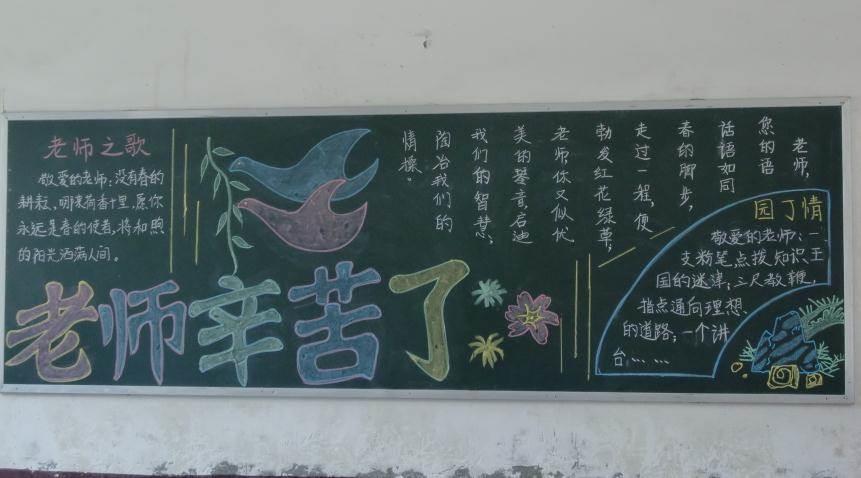 老师之歌
敬爱的老师：没有春的
耕耘，哪来荷香十里，愿你
永远是春的使者，将和煦
的阳光洒满人间。
老师辛苦了
老师，
您的语
话语如同
春的脚步，
走过一程，便
勃发红花绿草，
老师你又似优
美的琴音，启迪
我们的智慧，
陶冶我们的
情操。
园丁情
敬爱的老师：一
支粉笔点拨知识王
国的迷津；三尺教鞭，
指点通向理想
的道路；一个讲
台……